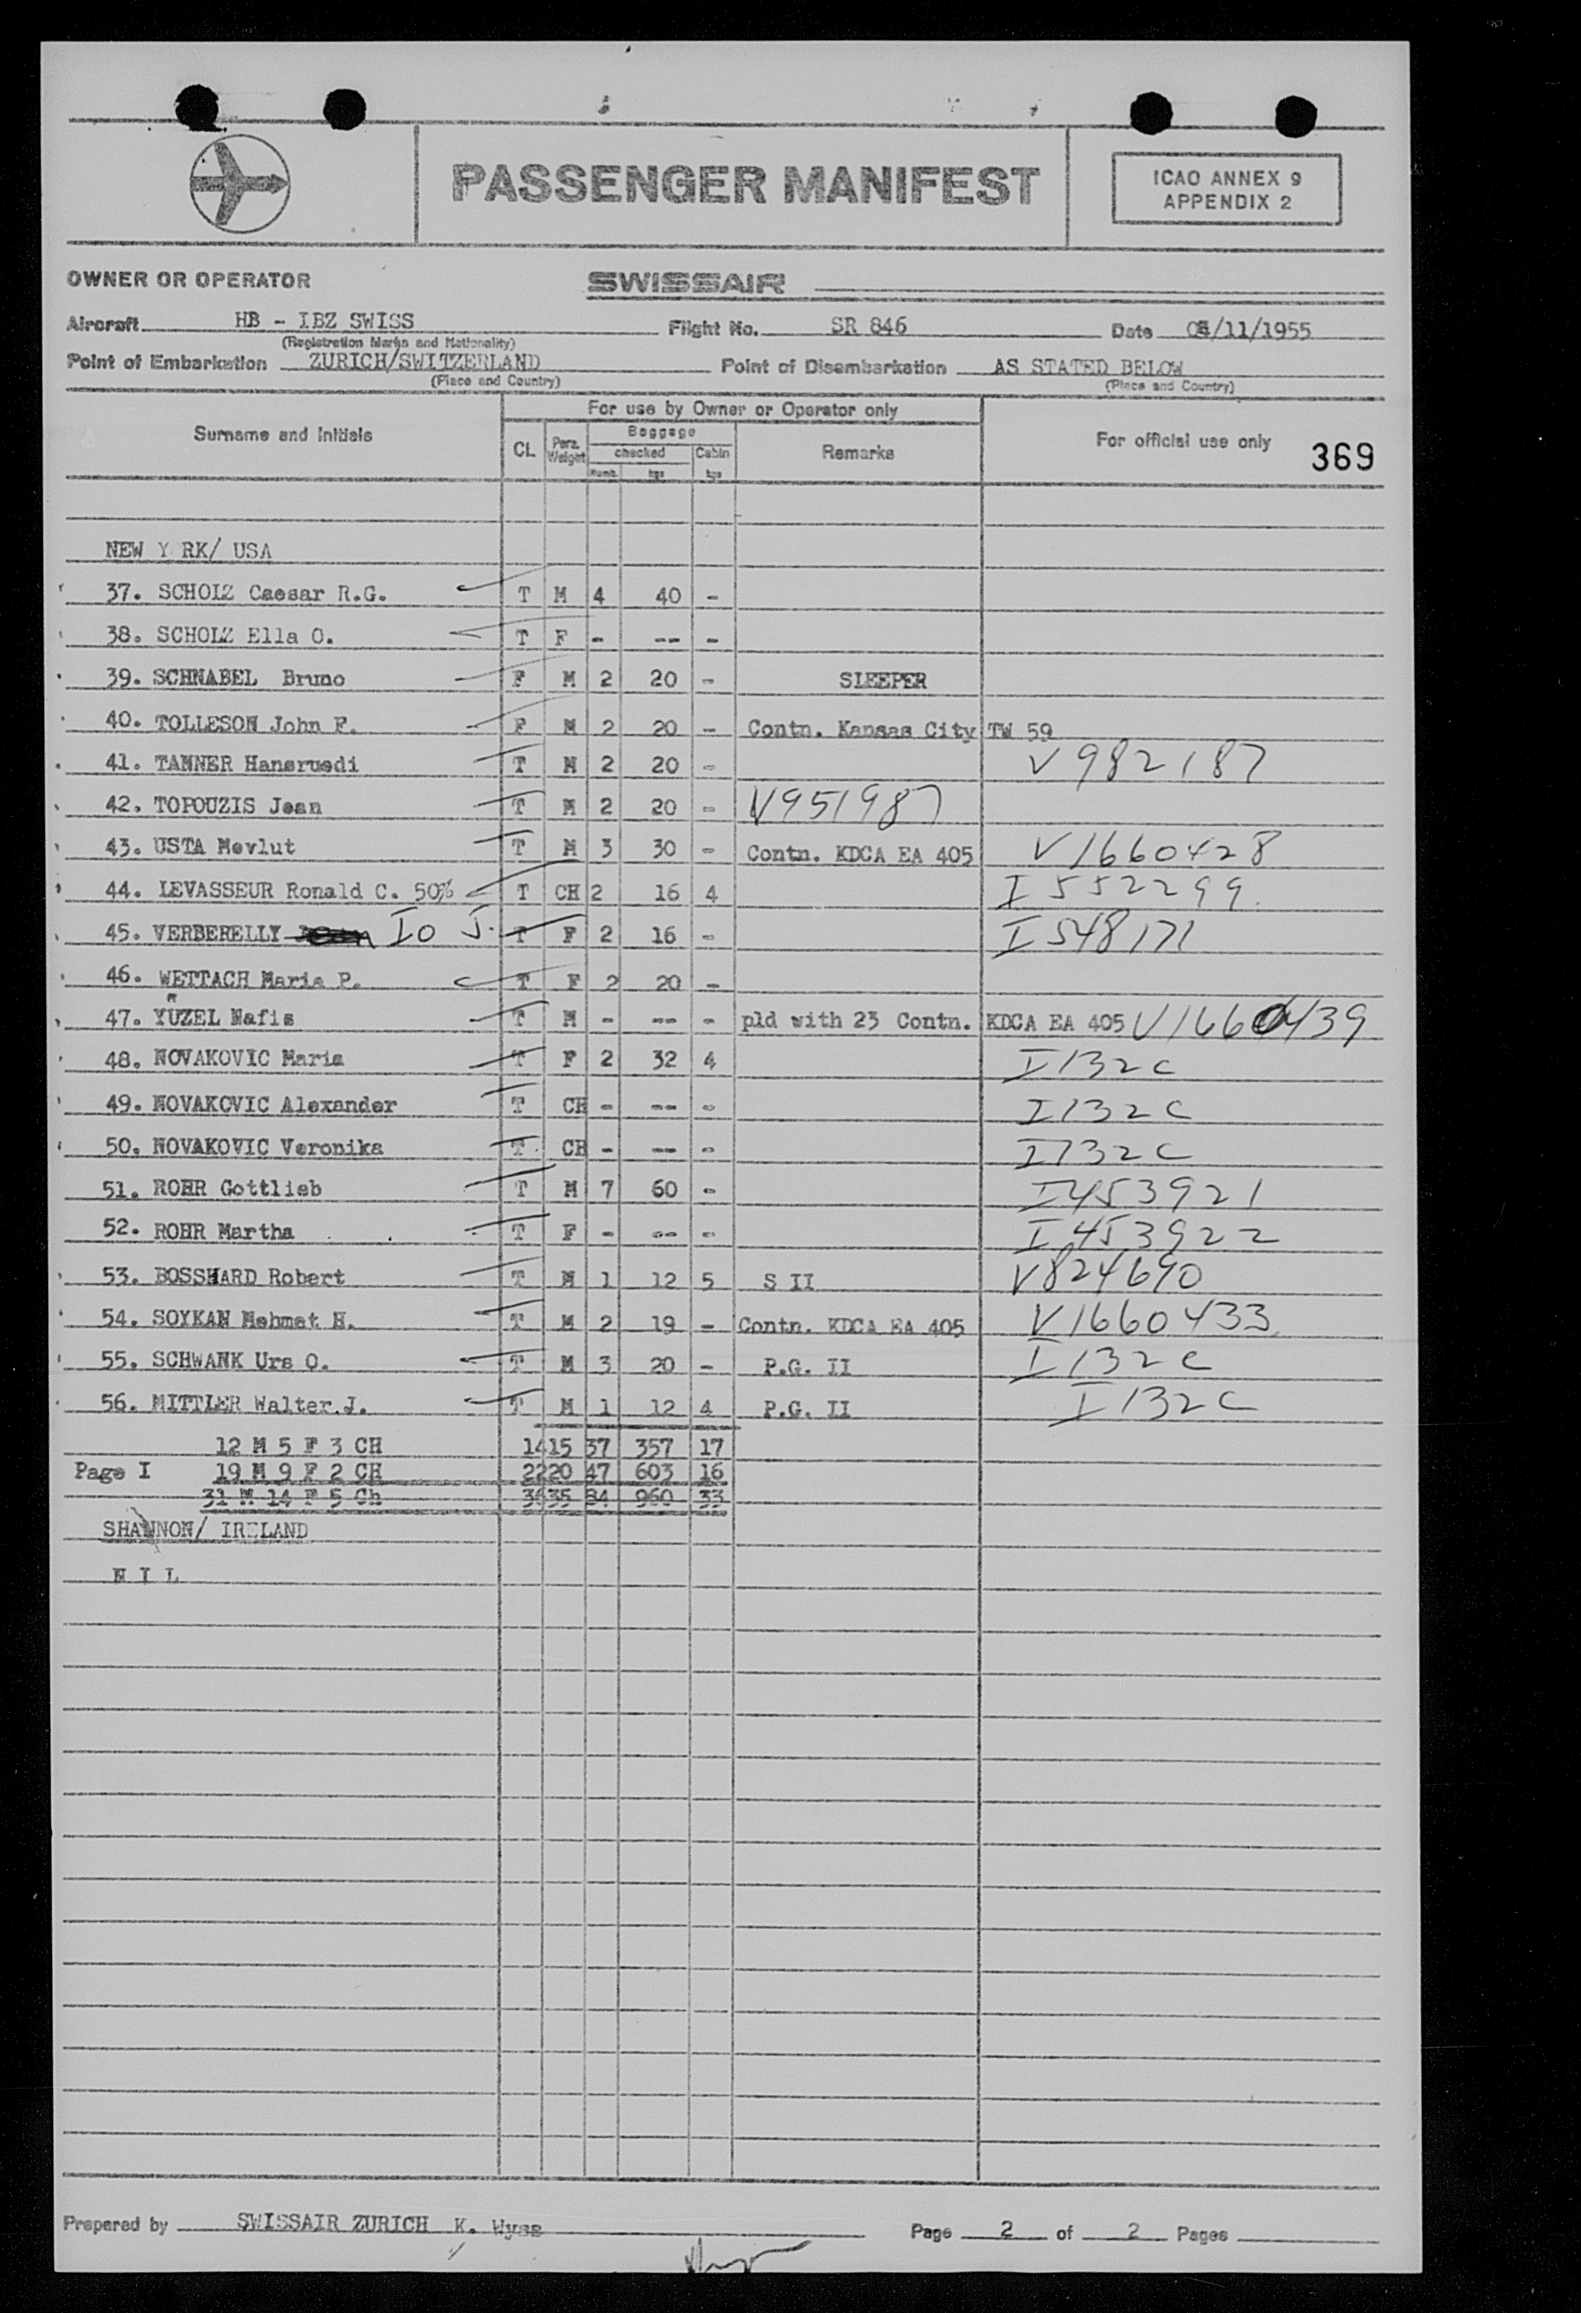 PASSENGER MANIFEST
ICAO ANNEX 9
APPENDIX 2
OWNER OR OPERATOR SWISSAIR
Aircraft HB - IBZ SWISS Flight No. SR 846 Date /11/1955
(Registration Marks and Nationality)
Point of Embarkation ZURICH/SWITZERLAND Point of Disembarkation AS STATED BELOW
(Place and Country) (Place and Country)
For use by Owner or Operator only
Surname and Initials CL Pers. Weight Baggage checked Numb. kgs Cabin kgs Remarks For official use only 369
NEW Y RK/ USA
37. SCHOLZ Caesar R.G. T M 4 40 -
38. SCHOLZ Ella O. T F - -- -
39. SCHNABEL Bruno F M 2 20 - SLEEPER
40. TOLLESON John F. F M 2 20 - Contn. Kansas City TW 59
41. TANNER Hansruedi T M 2 20 - V982187
42. TOPOUZIS Jean T M 2 20 - V951987
43. USTA Mevlut T M 3 30 - Contn. KDCA EA 405 V1660428
44. LEVASSEUR Ronald C. 50% T CH 2 16 4 I552299
45. VERBERELLY Io J. T F 2 16 - I548171
46. WETTACH Maria P. T F 2 20 -
47. YUZEL Nafis T M - -- - pld with 23 Contn. KDCA EA 405 V1660439
48. NOVAKOVIC Maria T F 2 32 4 I132C
49. NOVAKOVIC Alexander T CH - -- - I132C
50. NOVAKOVIC Veronika T CH - -- - I132C
51. ROHR Gottlieb T M 7 60 - I453921
52. ROHR Martha T F - -- - I453922
53. BOSSHARD Robert T M 1 12 5 S II V824690
54. SOYKAN Mehmet H. T M 2 19 - Contn. KDCA EA 405 V1660433
55. SCHWANK Urs O. T M 3 20 - P.G. II I132C
56. MITTLER Walter.J. T M 1 12 4 P.G. II I132C
12 M 5 F 3 CH 1415 37 357 17
Page I 19 M 9 F 2 CH 2220 47 603 16
31 M 14 F 5 Ch 3635 84 960 33
SHANNON/ IRELAND
N I L
Prepared by SWISSAIR ZURICH K. Wyss Page 2 of 2 Pages